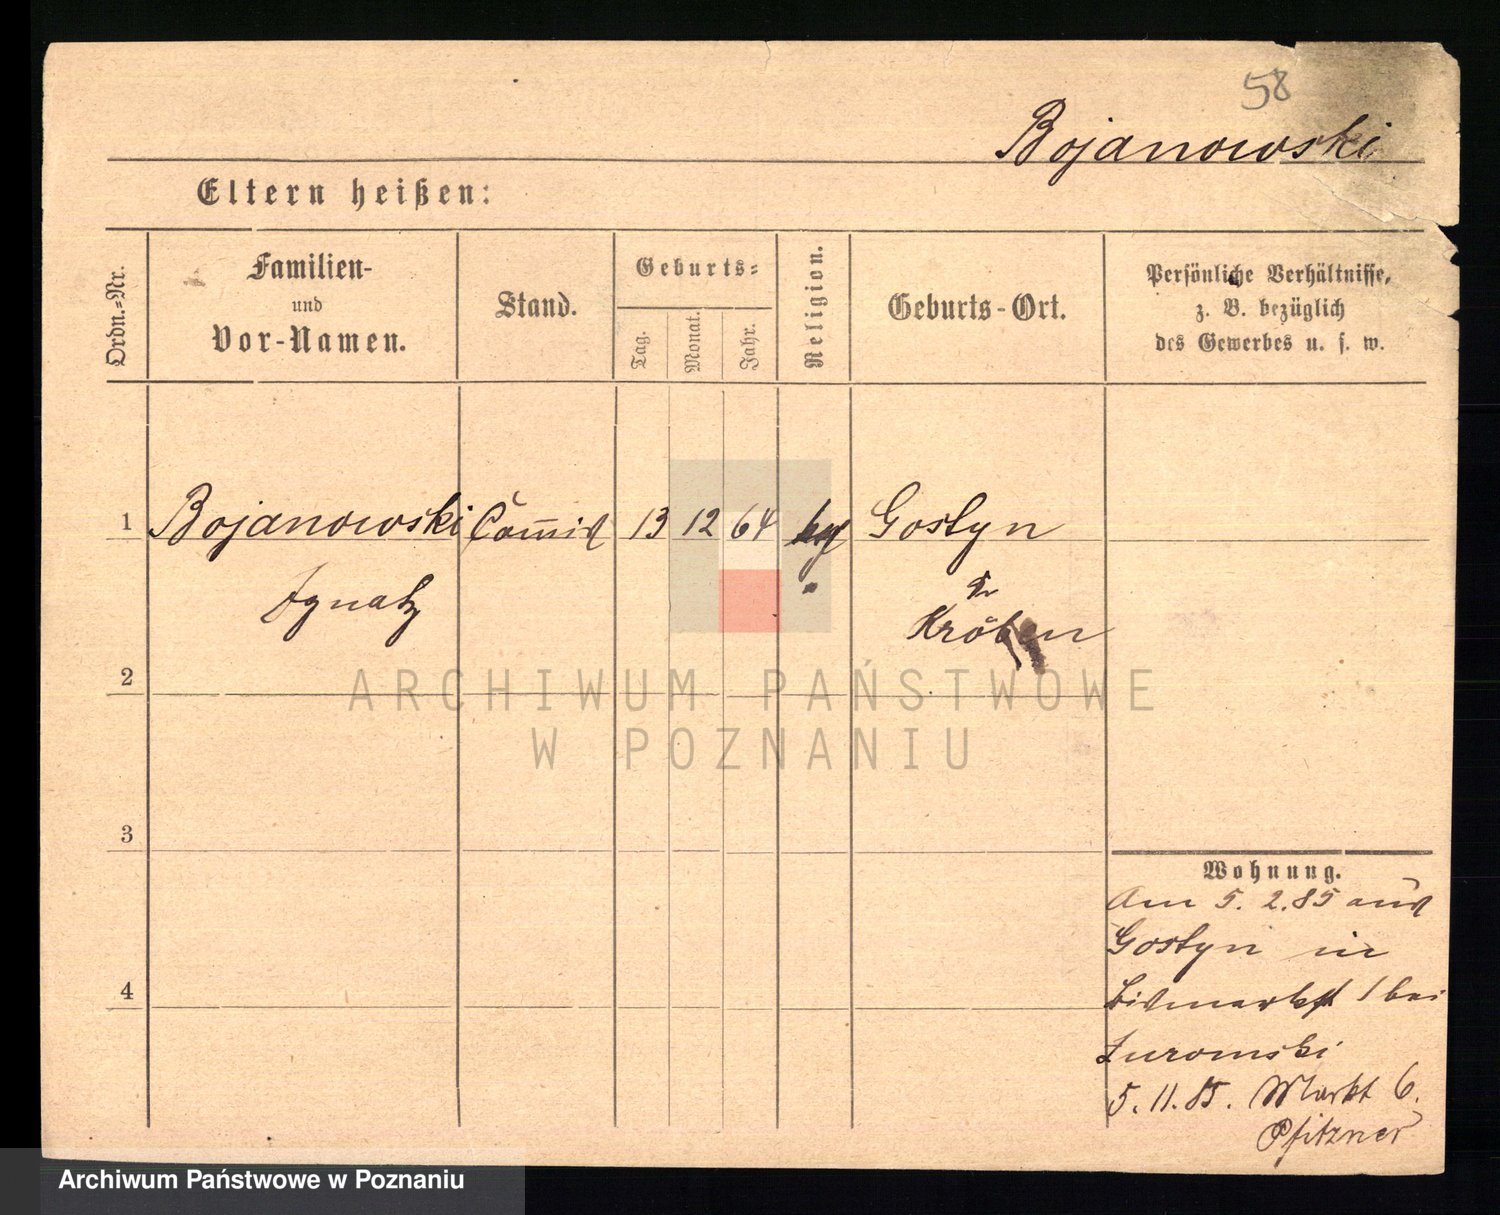 58
Bojanowski
Eltern heißen:
Ordn.-Nr.
Familien-
und
Vor-Namen.
Stand.
Geburts-
Tag.
Monat.
Jahr.
Religion.
Geburts-Ort.
Persönliche Verhältnisse,
z. B. bezüglich
des Gewerbes u. s. w.
1 Bojanowski Com̄is 13 12 64 Gostyn
Ignatz
Kr
Kröben
2
ARCHIWUM PAŃSTWOWE
W POZNANIU
3
4
Wohnung.
Am 5. 2. 85 aus
Gostyn in
Bismarkst 1 bei
Zuromski
5. 11. 85. Markt 6.
Pfitzner
Archiwum Państwowe w Poznaniu